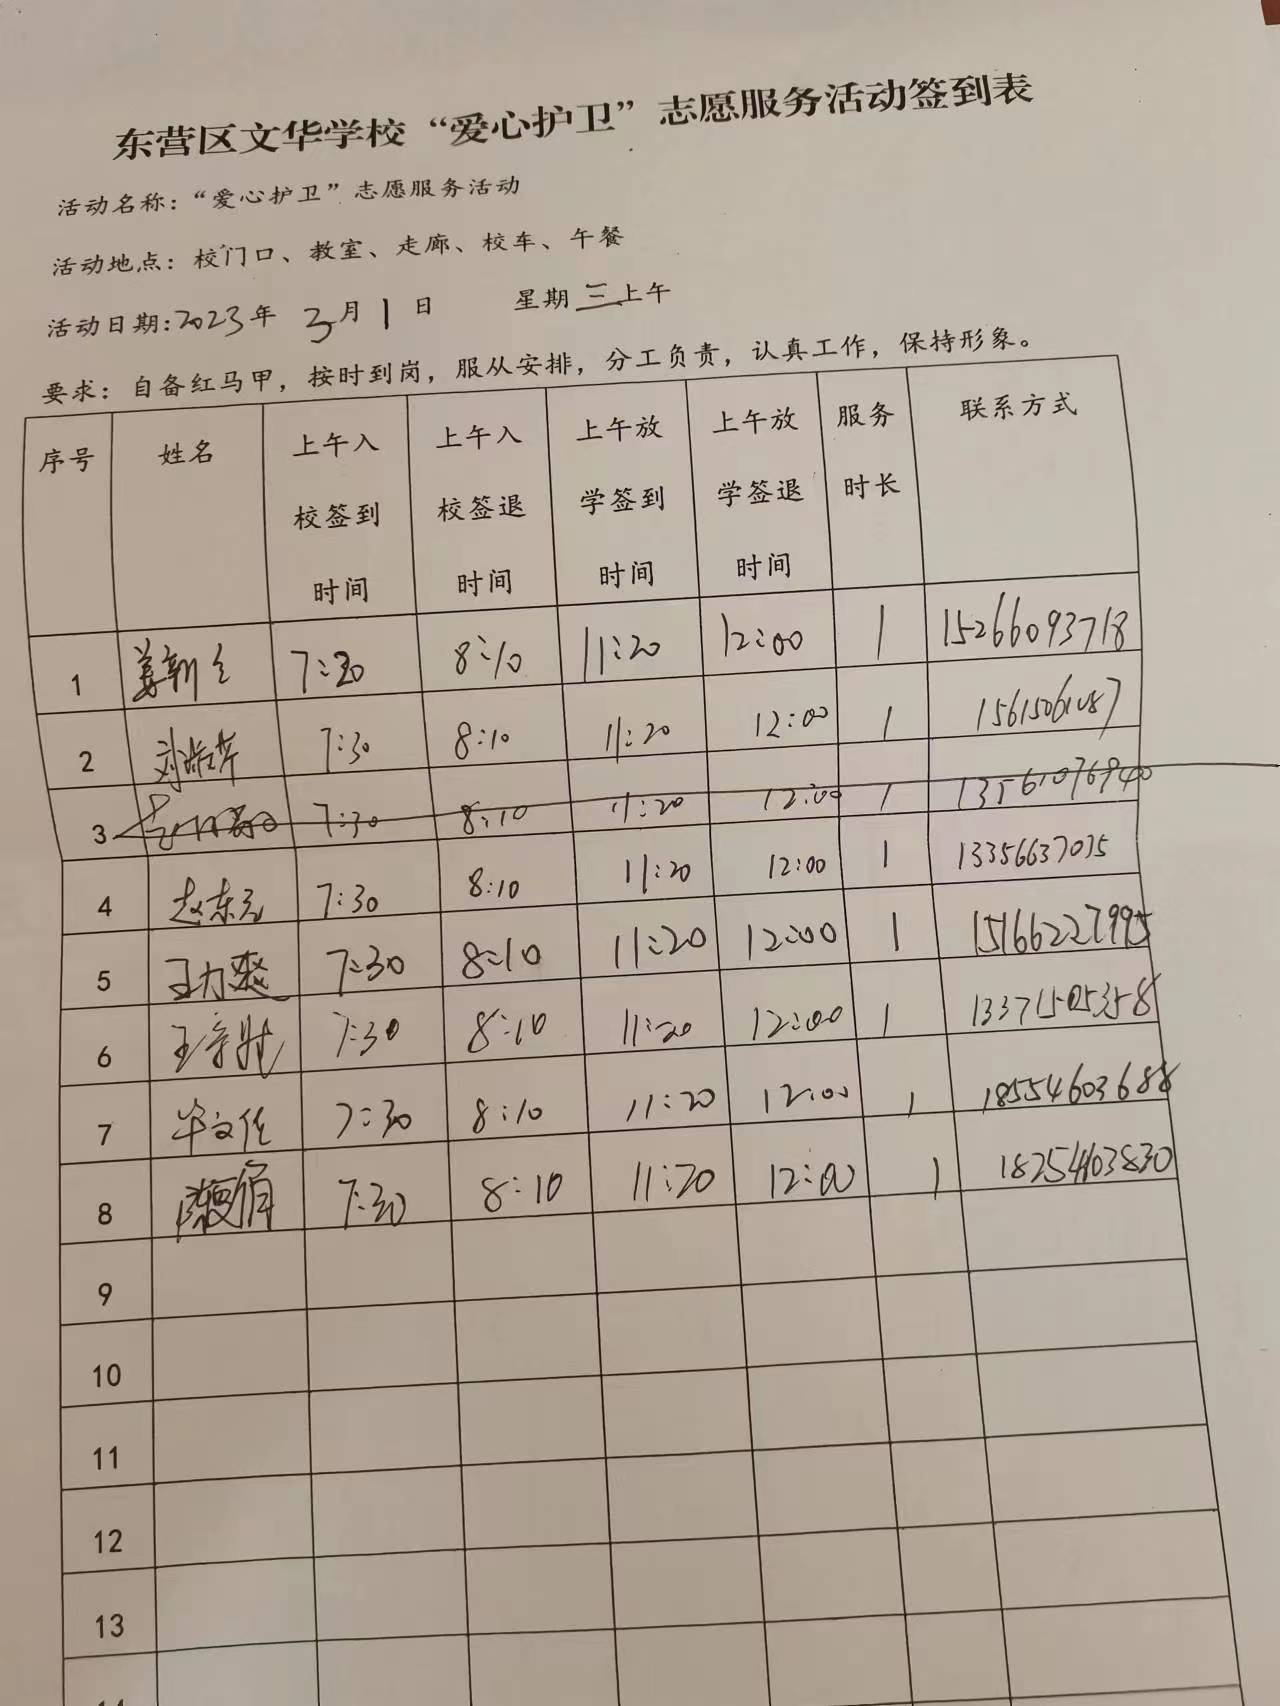 东营区文华学校“爱心护卫”志愿服务活动签到表
活动名称：“爱心护卫”志愿服务活动
活动地点：校门口、教室、走廊、校车、午餐
活动日期：2023年 3月 1日 星期三上午
要求：自备红马甲，按时到岗，服从安排，分工负责，认真工作，保持形象。
序号 姓名 上午入校签到时间 上午入校签退时间 上午放学签到时间 上午放学签退时间 服务时长 联系方式
1 7:30 8:10 11:20 12:00 1 15266093718
2 7:30 8:10 11:20 12:00 1
3 7:30 8:10 11:20 12:00 1 13561076940
4 赵东元 7:30 8:10 11:20 12:00 1 13356637035
5 王力爽 7:30 8:10 11:20 12:00 1 15166227995
6 7:30 8:10 11:20 12:00 1 13371505358
7 毕文佳 7:30 8:10 11:20 12:00 1 18554603688
8 7:30 8:10 11:20 12:00 1 18254603830
9
10
11
12
13
14